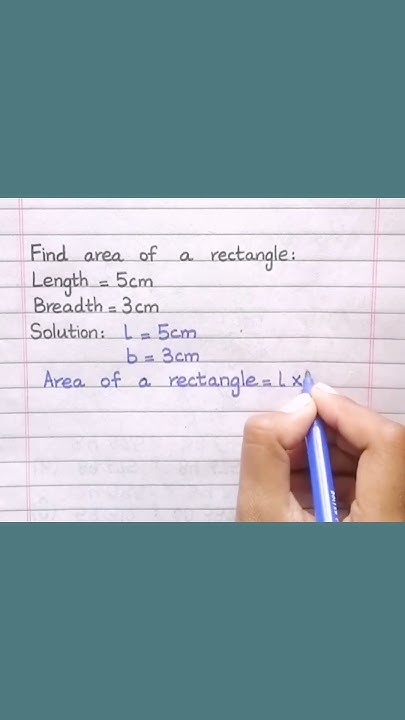 Find area of a rectangle:
Length = 5cm
Breadth = 3cm
Solution: l = 5cm
b = 3cm
Area of a rectangle = l ×